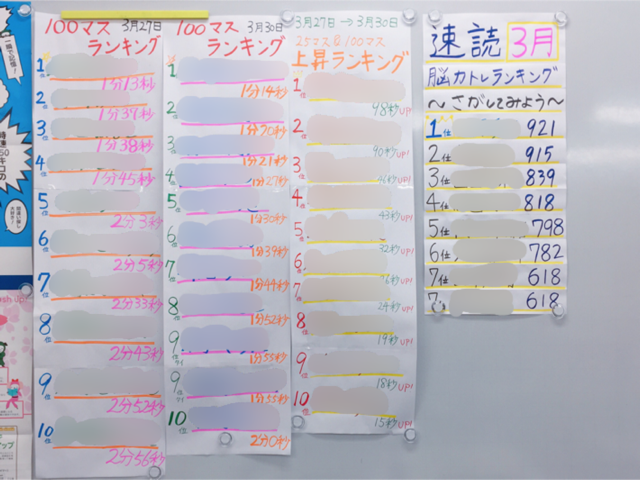 100マス 3月27日
ランキング
1位
1分13秒
2位
1分37秒
3位
1分38秒
4位
1分45秒
5位
2分3秒
6位
2分5秒
7位
2分33秒
8位
2分43秒
9位
2分52秒
10位
2分56秒
100マス 3月30日
ランキング
1位
1分14秒
2位
1分20秒
3位
1分21秒
4位
1分27秒
5位
1分30秒
6位
1分39秒
7位
1分44秒
8位
1分52秒
9位
1分55秒
9位
1分55秒
10位
2分0秒
3月27日→3月30日
25マス&100マス
上昇ランキング
1位
98秒UP!
2位
90秒UP!
3位
46秒UP!
4位
43秒UP!
5位
32秒UP!
6位
7位
24秒UP!
8位
19秒UP!
9位
18秒UP!
10位
15秒UP!
速読 3月
脳カトレランキング
～さがしてみよう～
1位 921
2位 915
3位 839
4位 818
5位 798
6位 782
7位 618
7位 618